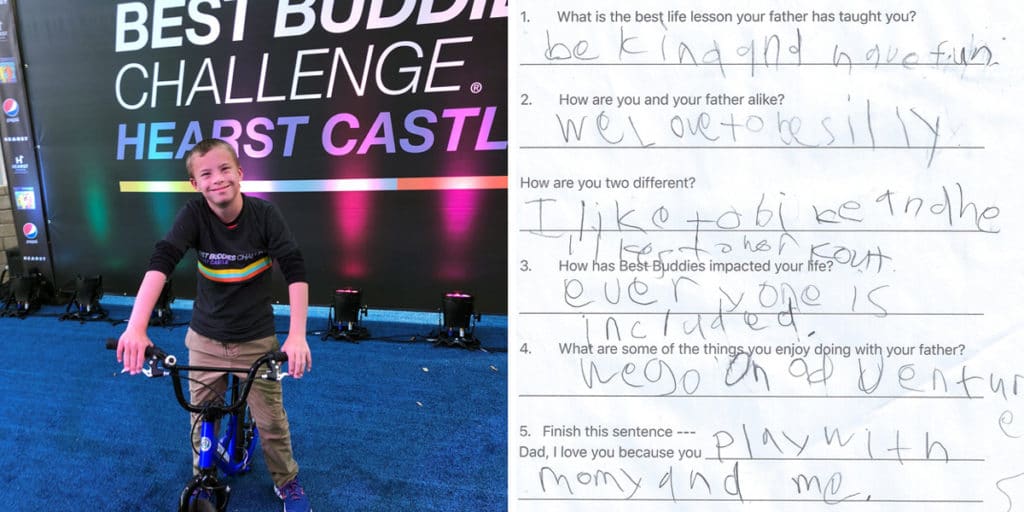 BEST BUDDIE
CHALLENGE®
HEARST CASTL
pepsi
HEARST
H
HEARST
pepsi
HEARST
BEST BUDDIES CHAL
CASTLE
1. What is the best life lesson your father has taught you?
be kind and have fun.
2. How are you and your father alike?
We Love to be silly.
How are you two different?
I like to bike and he
likes to workout.
3. How has Best Buddies impacted your life?
everyone is
included.
4. What are some of the things you enjoy doing with your father?
We go on adventure
5. Finish this sentence ---
Dad, I love you because you play with
momy and me.